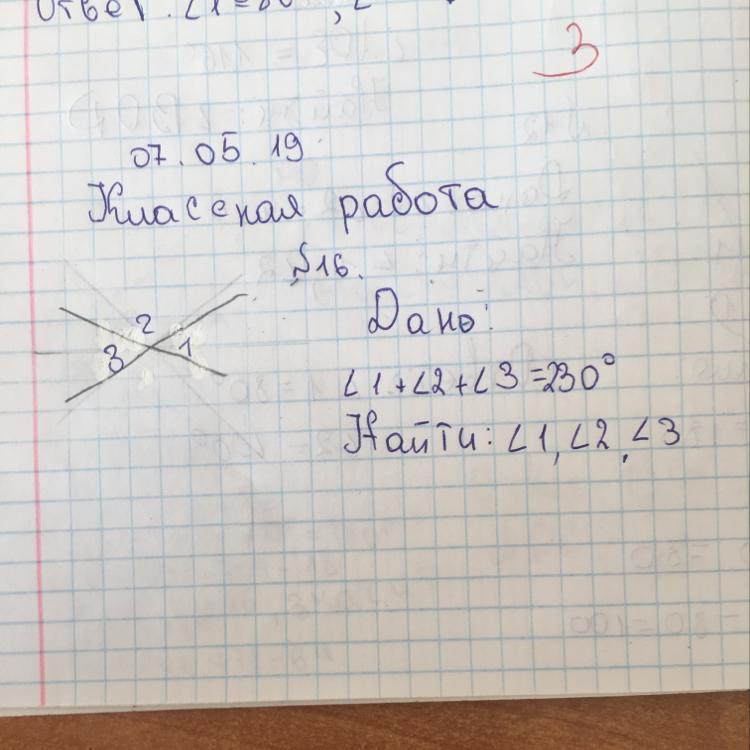 Ответ. ∠1=80
3
07.05.19
Классная работа
№16.
Дано:
2
3 1
∠1+∠2+∠3=230°
Найти: ∠1, ∠2, ∠3